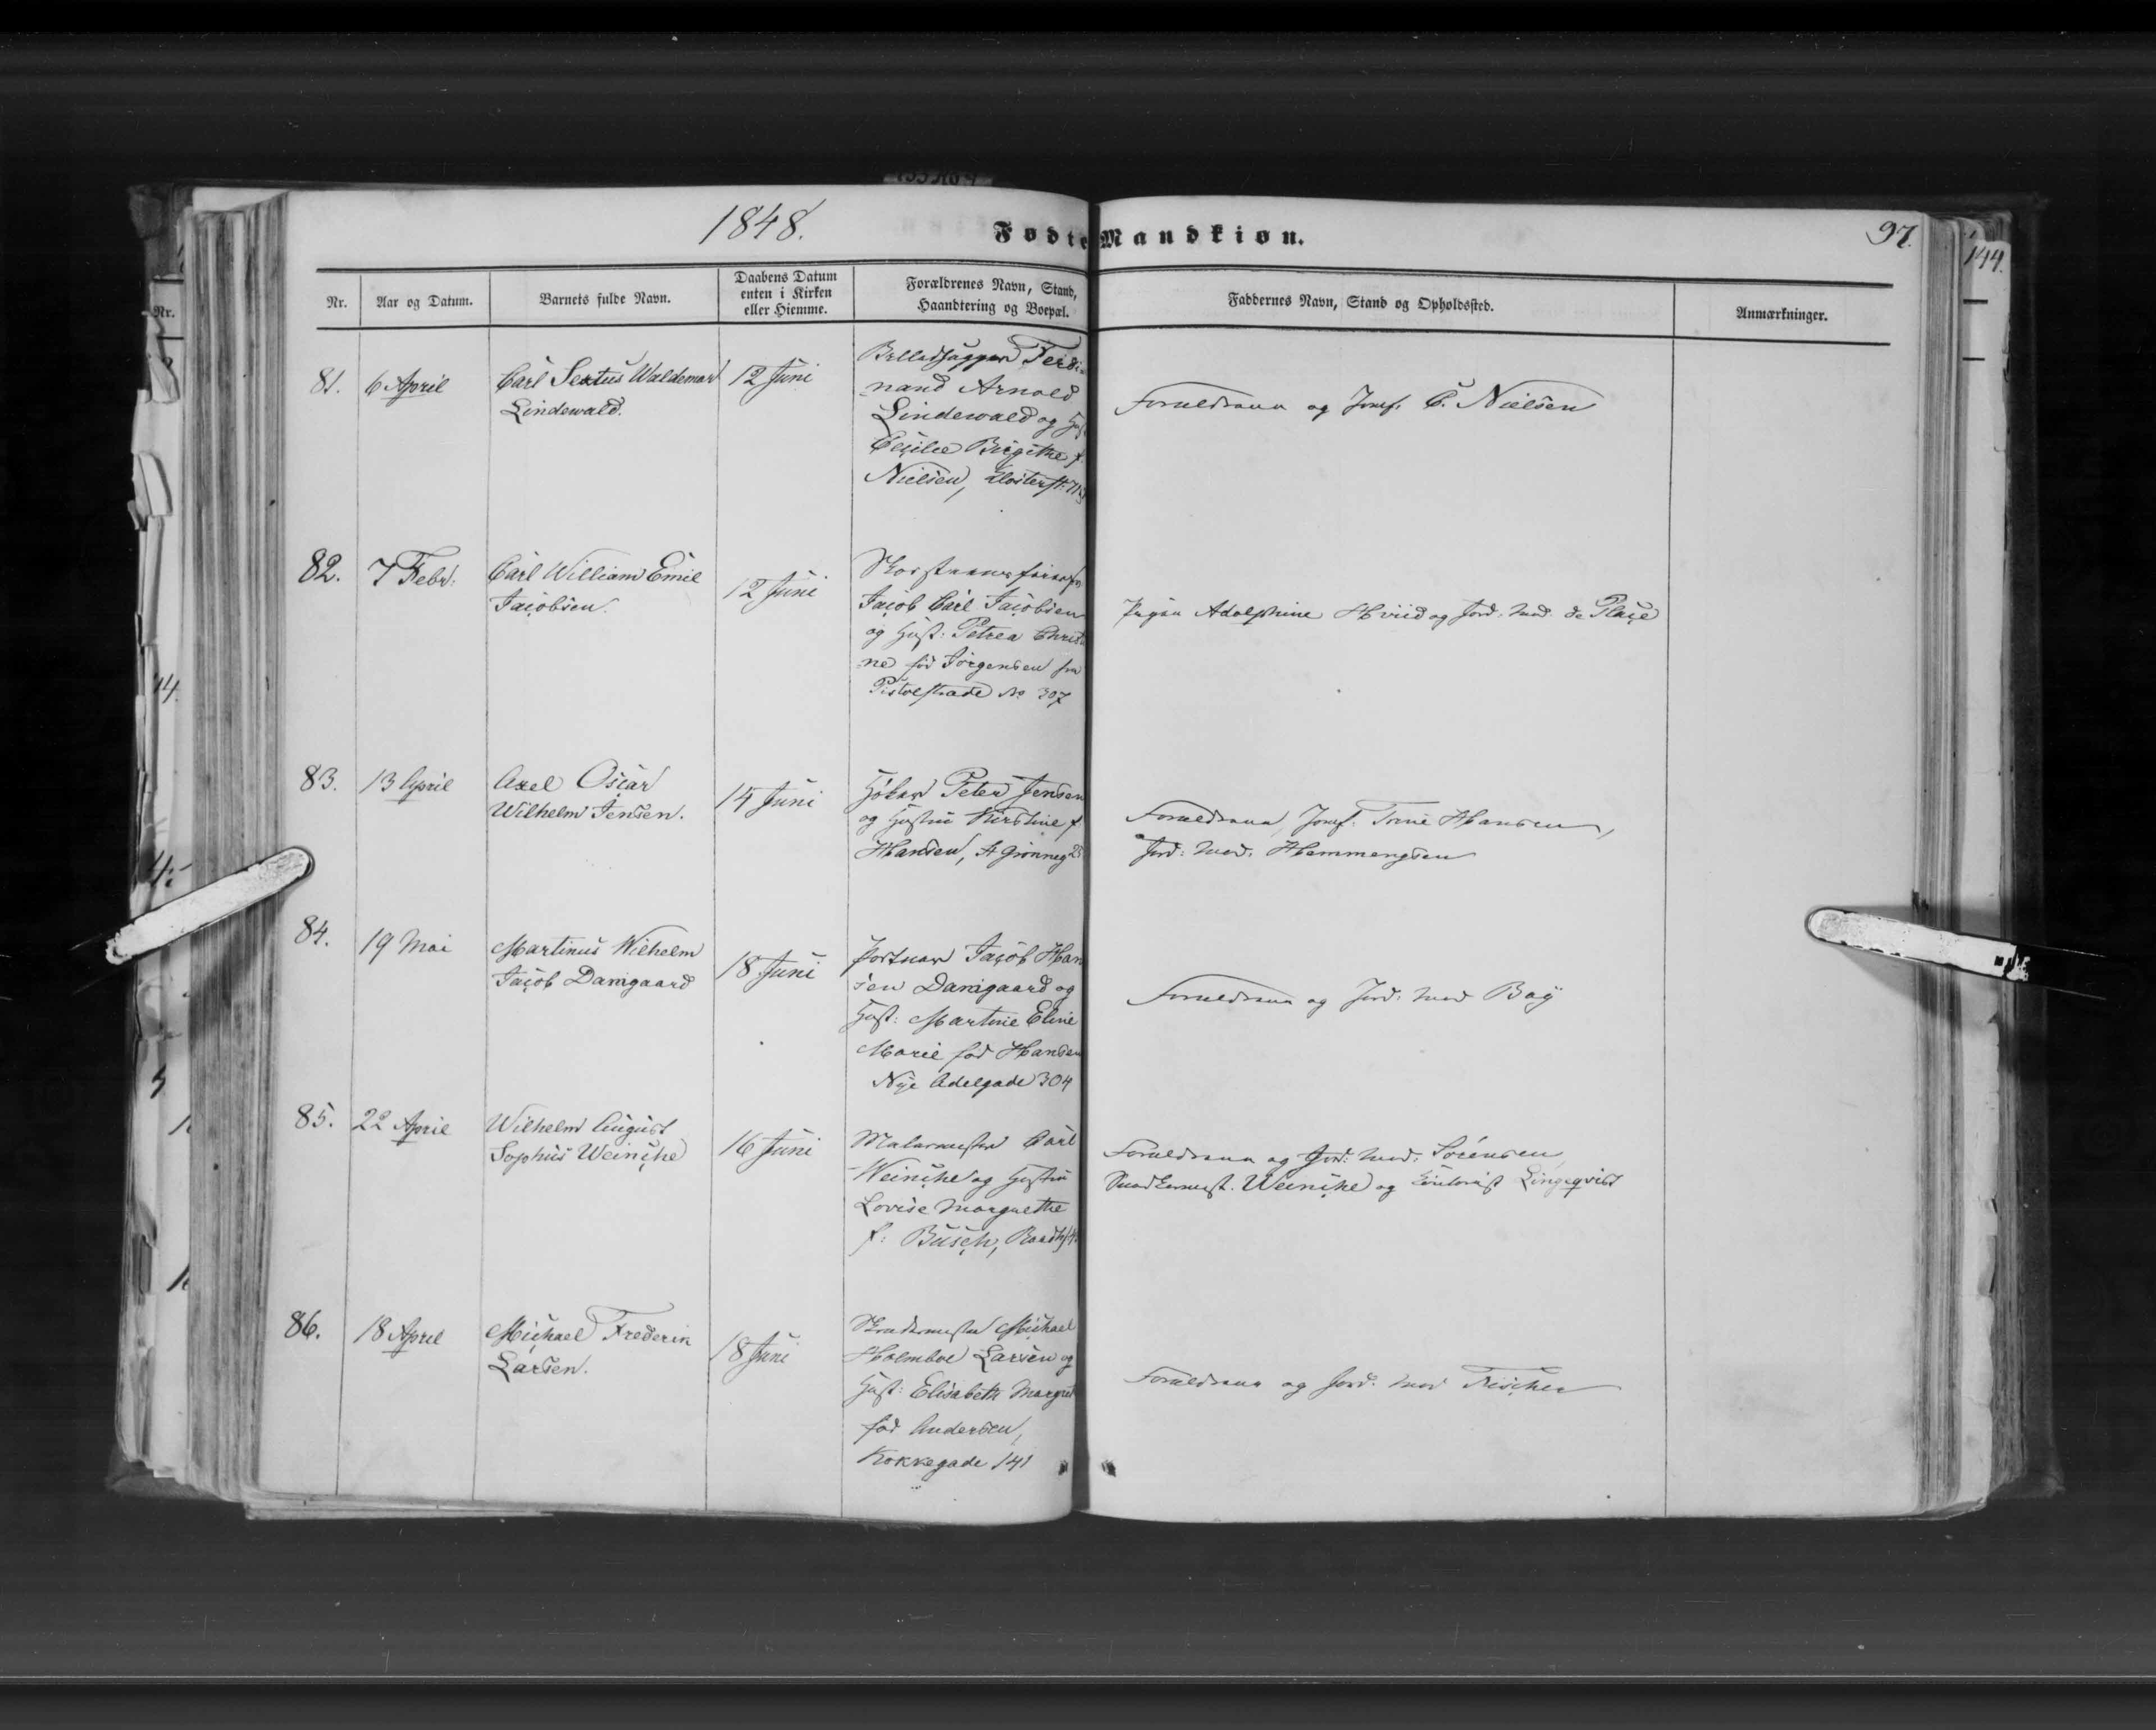 1848.
Fødte Mandkiøn.
97.
144.
Nr.
Nr.
Aar og Datum.
Barnets fulde Navn.
Daabens Datum
enten i Kirken
eller Hiemme.
Forældrenes Navn, Stand,
Haandtering og Boepæl.
Faddernes Navn, Stand og Opholdssted.
Anmærkninger.
81.
6 April
Carl Sextus Waldemar
Lindewald.
12 Juni
Billedhugger Ferdi-
nand Arnold
Lindewald og
Cecilie Birgithe f.
Nielsen, Klosterst.
Forældrene og Jomf. C. Nielsen
82.
7 Febr.
Carl William Emil
Jacobsen.
12 Juni
Jacob Carl Jacobsen
og Hust: Petrea Christi
ne fød Jørgensen fra
Pistolstræde No 307
Adolphine Hviid og Jord: mod. de Place
83.
13 April
Axel Oscar
Wilhelm Jensen.
14 Juni
Høker Peter Jensen
og Hustru Kirstine f.
Hansen, St Grönneg
Forældrene, Jomf. Trine Hansen,
Jord: mod. Hemmengsen
84.
19 Mai
Martinus Wilhelm
Jacob Damgaard
18 Juni
Portner Jacob Han
sen Damgaard og
Hust: Martine Eline
Marie fød Hansen
Nye Adelgade 304
Forældrene og Jord: mod Bay
85.
22 April
Wilhelm August
Sophus Weinche
16 Juni
Malermester Carl
Weinche og Hustru
Lovise Margrethe
f: Busch,
Forældrene og Jord: mod: Sørensen,
Snedkermest. Weinche og Lingqvist
86.
18 April
Michael Frederik
Larsen.
18 Juni
Michael
Holmboe Larsen og
Hust: Elisabeth Margret
fød Andersen,
Kokkegade 141
Forældrene og Jord. mod Fischer